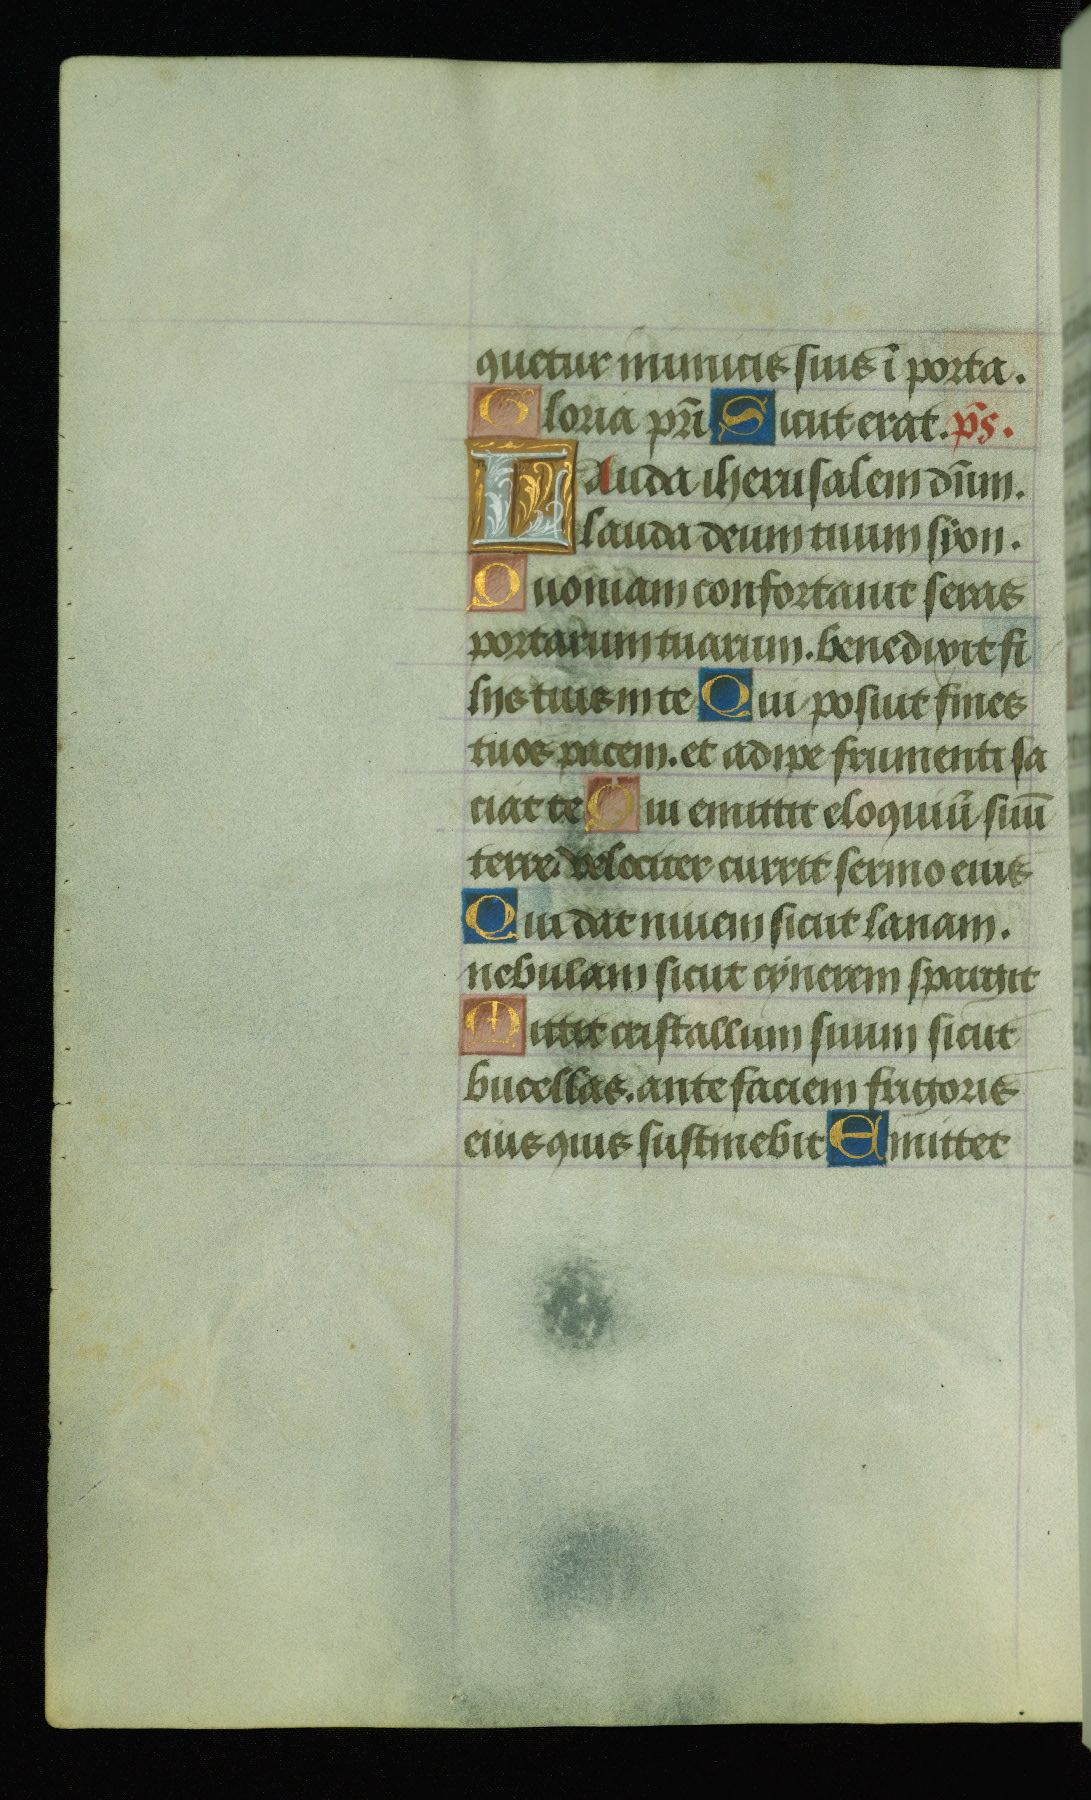 quetur inimicis suis ī porta.
Gloria pr̄i Sicut erat. p̄s.
Lauda iherusalem dn̄m.
lauda deum tuum syon.
Quoniam confortauit seras
portarum tuarum. benedixit fi
lijs tuis in te Qui posuit fines
tuos pacem. et adipe frumenti sa
ciat te Qui emittit eloquiū suū
terre. velociter currit sermo eius
Qui dat niuem sicut lanam.
nebulam sicut cynerem spargit
Mittit cristallum suum sicut
bucellas. ante faciem frigoris
eius quis sustinebit Emittet